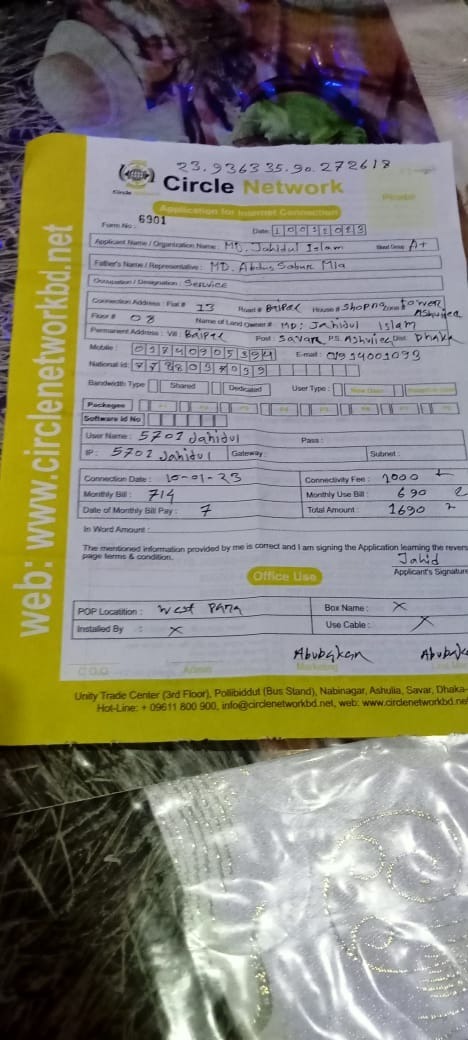 23.936335.90.272618
Circle Network
Application for Internet Connection
Form No : 6901
Date: 10012023
Applicant Name / Organization Name : MD. Jahidul Islam Blood Group A+
Father's Name / Representative : MD. Abdus Sabur Mia
Occupation / Designation : Service
Connection Address : Flat # 13 Road # Baipal House # Zone tower
Ashulea
Floor # 08 Name of Land Owner # MD: Jahidul Islam
Permanent Address : Vill : Baipal Post : Savar P.S Ashuliea Dist. Dhaka
Mobile : E-mail :
National Id :
Bandwidth Type Shared Dedicated User Type :
Packages
Software Id No
User Name : 5701 Jahidul Pass :
IP : 5701 Jahidul Gateway: Subnet :
Connection Date : 10-01-23 Connectivity Fee : 1000
Monthly Bill : 714 Monthly Use Bill : 690
Date of Monthly Bill Pay : 7 Total Amount : 1690
In Word Amount :
The mentioned information provided by me is correct and I am signing the Application learning the revers
page terms & condition.
Jahid
Applicant's Signature
Office Use
POP Locatition : West Para Box Name : X
Installed By : X Use Cable : X
Abubakar Abubak
C.O.O Admin Marketing
Unity Trade Center (3rd Floor), Pollibiddut (Bus Stand), Nabinagar, Ashulia, Savar, Dhaka-
Hot-Line: + 09611 800 900, info@circlenetworkbd.net, web: www.circlenetworkbd.ne
web: www.circlenetworkbd.net